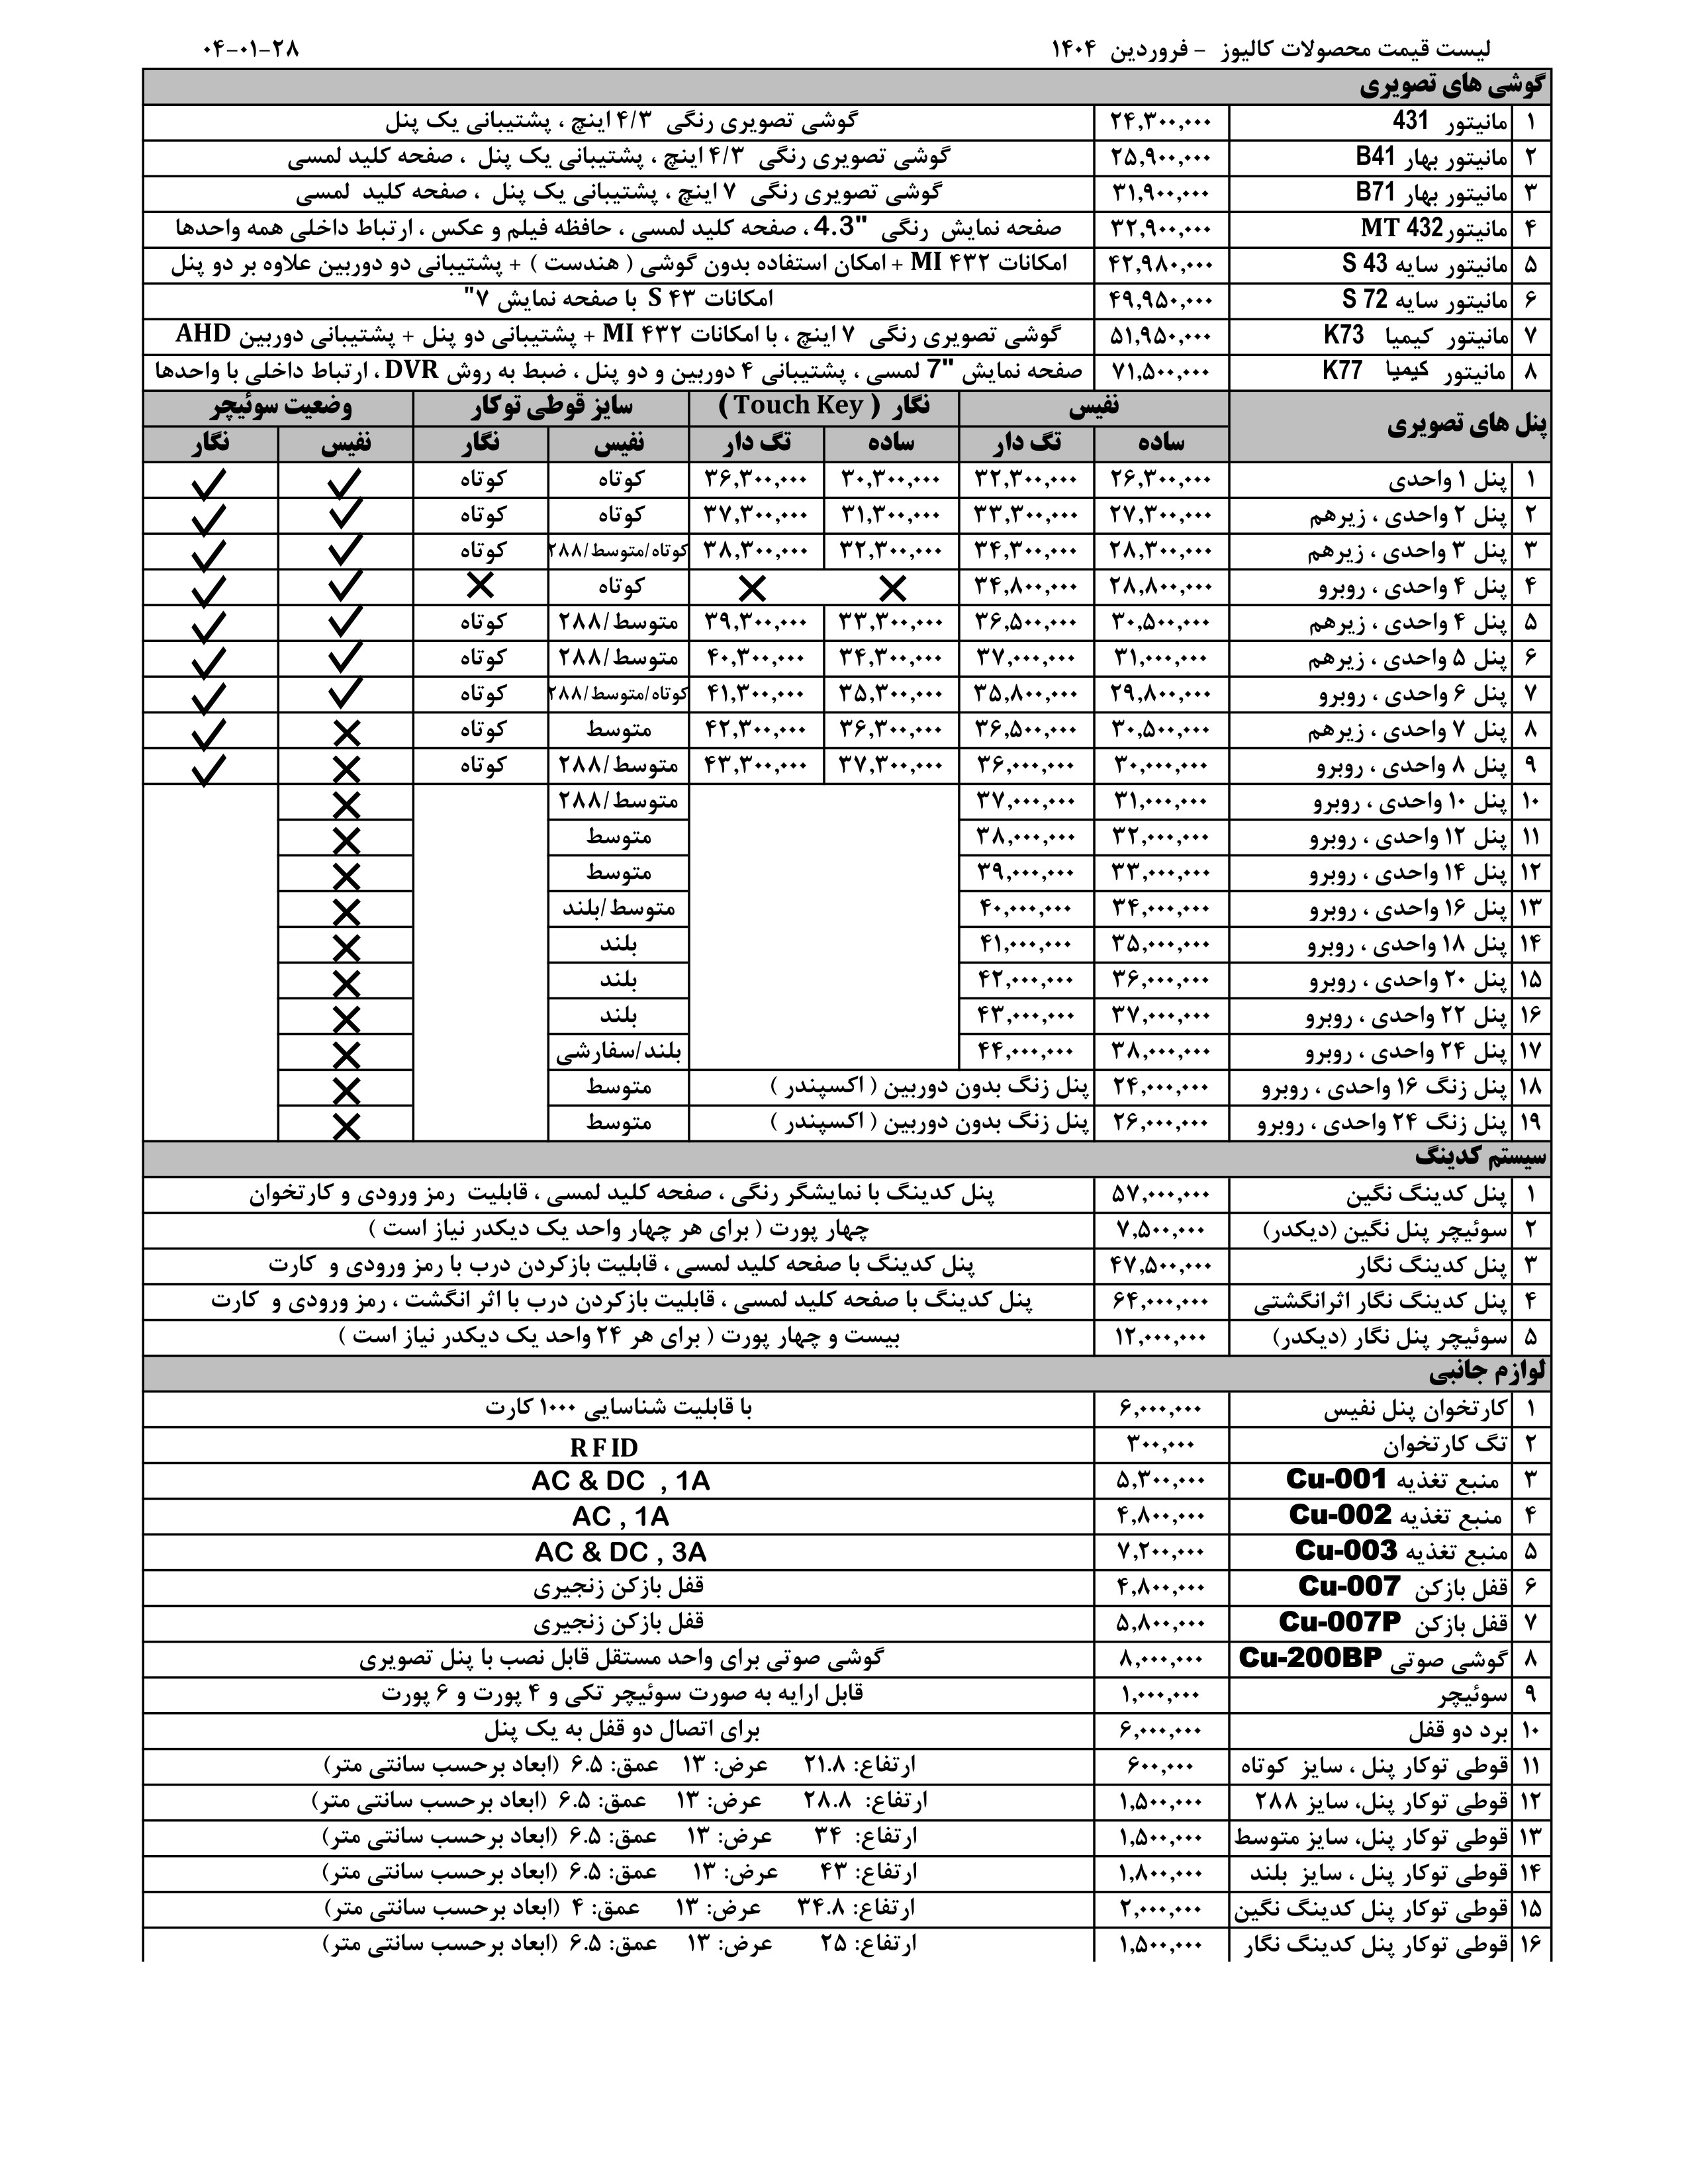 لیست قیمت محصولات کالیوز - فروردین ۱۴۰۴ ۰۴-۰۱-۲۸
گوشی های تصویری
۱ مانیتور 431 ۲۴,۳۰۰,۰۰۰ گوشی تصویری رنگی ۴/۳ اینچ ، پشتیبانی یک پنل
۲ مانیتور بهار B41 ۲۵,۹۰۰,۰۰۰ گوشی تصویری رنگی ۴/۳ اینچ ، پشتیبانی یک پنل ، صفحه کلید لمسی
۳ مانیتور بهار B71 ۳۱,۹۰۰,۰۰۰ گوشی تصویری رنگی ۷ اینچ ، پشتیبانی یک پنل ، صفحه کلید لمسی
۴ مانیتور MT 432 ۳۲,۹۰۰,۰۰۰ صفحه نمایش رنگی "4.3 ، صفحه کلید لمسی ، حافظه فیلم و عکس ، ارتباط داخلی همه واحدها
۵ مانیتور سایه S 43 ۴۲,۹۸۰,۰۰۰ امکانات MI ۴۳۲ + امکان استفاده بدون گوشی ( هندست ) + پشتیبانی دو دوربین علاوه بر دو پنل
۶ مانیتور سایه S 72 ۴۹,۹۵۰,۰۰۰ امکانات S ۴۳ با صفحه نمایش ۷"
۷ مانیتور کیمیا K73 ۵۱,۹۵۰,۰۰۰ گوشی تصویری رنگی ۷ اینچ ، با امکانات MI ۴۳۲ + پشتیبانی دو پنل + پشتیبانی دوربین AHD
۸ مانیتور کیمیا K77 ۷۱,۵۰۰,۰۰۰ صفحه نمایش "7 لمسی ، پشتیبانی ۴ دوربین و دو پنل ، ضبط به روش DVR ، ارتباط داخلی با واحدها
پنل های تصویری نفیس نگار ( Touch Key ) سایز قوطی توکار وضعیت سوئیچر
ساده تگ دار ساده تگ دار نفیس نگار نفیس نگار
۱ پنل ۱ واحدی ۲۶,۳۰۰,۰۰۰ ۳۲,۳۰۰,۰۰۰ ۳۰,۳۰۰,۰۰۰ ۳۶,۳۰۰,۰۰۰ کوتاه کوتاه ✓ ✓
۲ پنل ۲ واحدی ، زیرهم ۲۷,۳۰۰,۰۰۰ ۳۳,۳۰۰,۰۰۰ ۳۱,۳۰۰,۰۰۰ ۳۷,۳۰۰,۰۰۰ کوتاه کوتاه ✓ ✓
۳ پنل ۳ واحدی ، زیرهم ۲۸,۳۰۰,۰۰۰ ۳۴,۳۰۰,۰۰۰ ۳۲,۳۰۰,۰۰۰ ۳۸,۳۰۰,۰۰۰ کوتاه/متوسط/۲۸۸ کوتاه ✓ ✓
۴ پنل ۴ واحدی ، روبرو ۲۸,۸۰۰,۰۰۰ ۳۴,۸۰۰,۰۰۰ ✕ ✕ کوتاه ✕ ✓ ✓
۵ پنل ۴ واحدی ، زیرهم ۳۰,۵۰۰,۰۰۰ ۳۶,۵۰۰,۰۰۰ ۳۳,۳۰۰,۰۰۰ ۳۹,۳۰۰,۰۰۰ متوسط/۲۸۸ کوتاه ✓ ✓
۶ پنل ۵ واحدی ، زیرهم ۳۱,۰۰۰,۰۰۰ ۳۷,۰۰۰,۰۰۰ ۳۴,۳۰۰,۰۰۰ ۴۰,۳۰۰,۰۰۰ متوسط/۲۸۸ کوتاه ✓ ✓
۷ پنل ۶ واحدی ، روبرو ۲۹,۸۰۰,۰۰۰ ۳۵,۸۰۰,۰۰۰ ۳۵,۳۰۰,۰۰۰ ۴۱,۳۰۰,۰۰۰ کوتاه/متوسط/۲۸۸ کوتاه ✓ ✓
۸ پنل ۷ واحدی ، زیرهم ۳۰,۵۰۰,۰۰۰ ۳۶,۵۰۰,۰۰۰ ۳۶,۳۰۰,۰۰۰ ۴۲,۳۰۰,۰۰۰ متوسط کوتاه ✕ ✓
۹ پنل ۸ واحدی ، روبرو ۳۰,۰۰۰,۰۰۰ ۳۶,۰۰۰,۰۰۰ ۳۷,۳۰۰,۰۰۰ ۴۳,۳۰۰,۰۰۰ متوسط/۲۸۸ کوتاه ✕ ✓
۱۰ پنل ۱۰ واحدی ، روبرو ۳۱,۰۰۰,۰۰۰ ۳۷,۰۰۰,۰۰۰ متوسط/۲۸۸ ✕
۱۱ پنل ۱۲ واحدی ، روبرو ۳۲,۰۰۰,۰۰۰ ۳۸,۰۰۰,۰۰۰ متوسط ✕
۱۲ پنل ۱۴ واحدی ، روبرو ۳۳,۰۰۰,۰۰۰ ۳۹,۰۰۰,۰۰۰ متوسط ✕
۱۳ پنل ۱۶ واحدی ، روبرو ۳۴,۰۰۰,۰۰۰ ۴۰,۰۰۰,۰۰۰ متوسط/بلند ✕
۱۴ پنل ۱۸ واحدی ، روبرو ۳۵,۰۰۰,۰۰۰ ۴۱,۰۰۰,۰۰۰ بلند ✕
۱۵ پنل ۲۰ واحدی ، روبرو ۳۶,۰۰۰,۰۰۰ ۴۲,۰۰۰,۰۰۰ بلند ✕
۱۶ پنل ۲۲ واحدی ، روبرو ۳۷,۰۰۰,۰۰۰ ۴۳,۰۰۰,۰۰۰ بلند ✕
۱۷ پنل ۲۴ واحدی ، روبرو ۳۸,۰۰۰,۰۰۰ ۴۴,۰۰۰,۰۰۰ بلند/سفارشی ✕
۱۸ پنل زنگ ۱۶ واحدی ، روبرو ۲۴,۰۰۰,۰۰۰ پنل زنگ بدون دوربین ( اکسپندر ) متوسط ✕
۱۹ پنل زنگ ۲۴ واحدی ، روبرو ۲۶,۰۰۰,۰۰۰ پنل زنگ بدون دوربین ( اکسپندر ) متوسط ✕
سیستم کدینگ
۱ پنل کدینگ نگین ۵۷,۰۰۰,۰۰۰ پنل کدینگ با نمایشگر رنگی ، صفحه کلید لمسی ، قابلیت رمز ورودی و کارتخوان
۲ سوئیچر پنل نگین (دیکدر) ۷,۵۰۰,۰۰۰ چهار پورت ( برای هر چهار واحد یک دیکدر نیاز است )
۳ پنل کدینگ نگار ۴۷,۵۰۰,۰۰۰ پنل کدینگ با صفحه کلید لمسی ، قابلیت بازکردن درب با رمز ورودی و کارت
۴ پنل کدینگ نگار اثرانگشتی ۶۴,۰۰۰,۰۰۰ پنل کدینگ با صفحه کلید لمسی ، قابلیت بازکردن درب با اثر انگشت ، رمز ورودی و کارت
۵ سوئیچر پنل نگار (دیکدر) ۱۲,۰۰۰,۰۰۰ بیست و چهار پورت ( برای هر ۲۴ واحد یک دیکدر نیاز است )
لوازم جانبی
۱ کارتخوان پنل نفیس ۶,۰۰۰,۰۰۰ با قابلیت شناسایی ۱۰۰۰ کارت
۲ تگ کارتخوان ۳۰۰,۰۰۰ RFID
۳ منبع تغذیه Cu-001 ۵,۳۰۰,۰۰۰ AC & DC , 1A
۴ منبع تغذیه Cu-002 ۴,۸۰۰,۰۰۰ AC , 1A
۵ منبع تغذیه Cu-003 ۷,۲۰۰,۰۰۰ AC & DC , 3A
۶ قفل بازکن Cu-007 ۴,۸۰۰,۰۰۰ قفل بازکن زنجیری
۷ قفل بازکن Cu-007P ۵,۸۰۰,۰۰۰ قفل بازکن زنجیری
۸ گوشی صوتی Cu-200BP ۸,۰۰۰,۰۰۰ گوشی صوتی برای واحد مستقل قابل نصب با پنل تصویری
۹ سوئیچر ۱,۰۰۰,۰۰۰ قابل ارایه به صورت سوئیچر تکی و ۴ پورت و ۶ پورت
۱۰ برد دو قفل ۶,۰۰۰,۰۰۰ برای اتصال دو قفل به یک پنل
۱۱ قوطی توکار پنل ، سایز کوتاه ۶۰۰,۰۰۰ ارتفاع: ۲۱.۸ عرض: ۱۳ عمق: ۶.۵ (ابعاد برحسب سانتی متر)
۱۲ قوطی توکار پنل، سایز ۲۸۸ ۱,۵۰۰,۰۰۰ ارتفاع: ۲۸.۸ عرض: ۱۳ عمق: ۶.۵ (ابعاد برحسب سانتی متر)
۱۳ قوطی توکار پنل، سایز متوسط ۱,۵۰۰,۰۰۰ ارتفاع: ۳۴ عرض: ۱۳ عمق: ۶.۵ (ابعاد برحسب سانتی متر)
۱۴ قوطی توکار پنل ، سایز بلند ۱,۸۰۰,۰۰۰ ارتفاع: ۴۳ عرض: ۱۳ عمق: ۶.۵ (ابعاد برحسب سانتی متر)
۱۵ قوطی توکار پنل کدینگ نگین ۲,۰۰۰,۰۰۰ ارتفاع: ۳۴.۸ عرض: ۱۳ عمق: ۴ (ابعاد برحسب سانتی متر)
۱۶ قوطی توکار پنل کدینگ نگار ۱,۵۰۰,۰۰۰ ارتفاع: ۲۵ عرض: ۱۳ عمق: ۶.۵ (ابعاد برحسب سانتی متر)